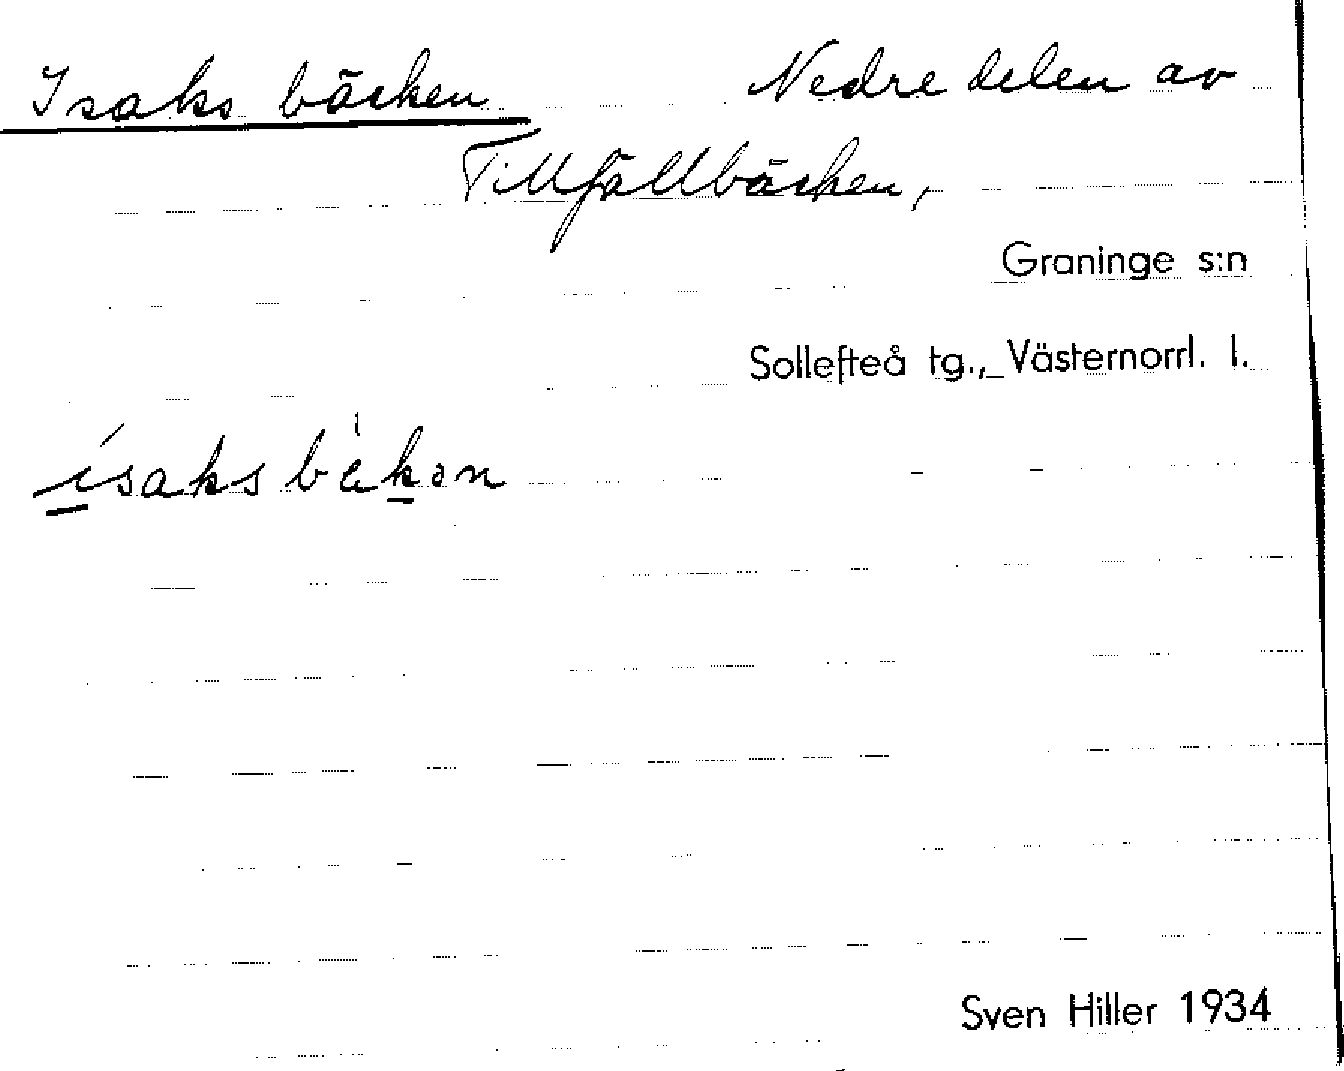 Isaks bäcken Nedre delen av
Tillfällbäcken,
Graninge s:n
Sollefteå tg., Västernorrl. l.
ísaks bèkən
Sven Hiller 1934